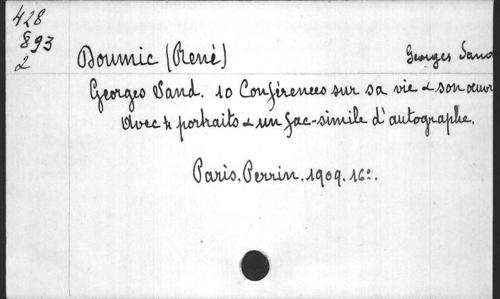 428
893
2
Doumic (René) Georges Sand
Georges Sand. 10 Conférences sur sa vie & son oeuvre
avec 4 portraits & un fac-simile d'autographe.
Paris. Perrin. 1909. 16º.